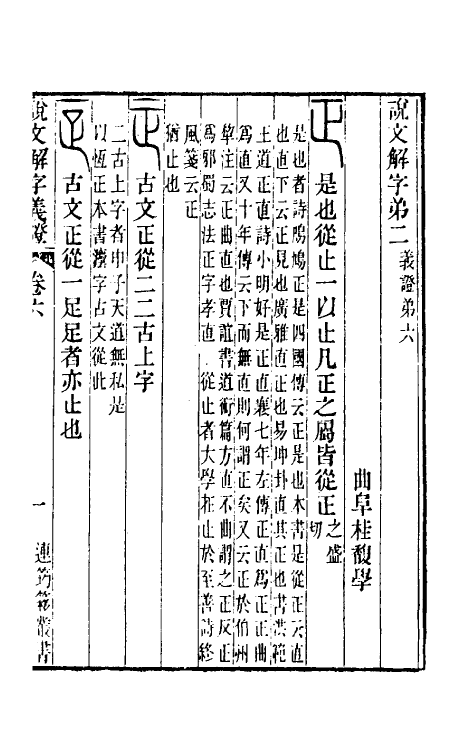 說文解字弟二 義證弟六
曲阜桂馥學
正 是也從止一以止凡正之屬皆從正之盛切
是也者詩鳲鳩正是四國傳云正是也本書是從正云直
也直下云正見也廣雅直正也易坤卦直其正也書洪範
王道正直詩小明好是正直襄七年左傳正直爲正正曲
爲直又十年傳云下而無直則何謂正矣又云正於伯州
犂注云正曲直也賈誼書道術篇方直不曲謂之正反正
爲邪蜀志法正字孝直 從止者大學在止於至善詩終
風箋云正
猶止也
古文正從二二古上字
二古上字者申子天道無私是
以恆正本書字古文從此
古文正從一足足者亦止也
說文解字義證 卷六 一 連筠簃叢書